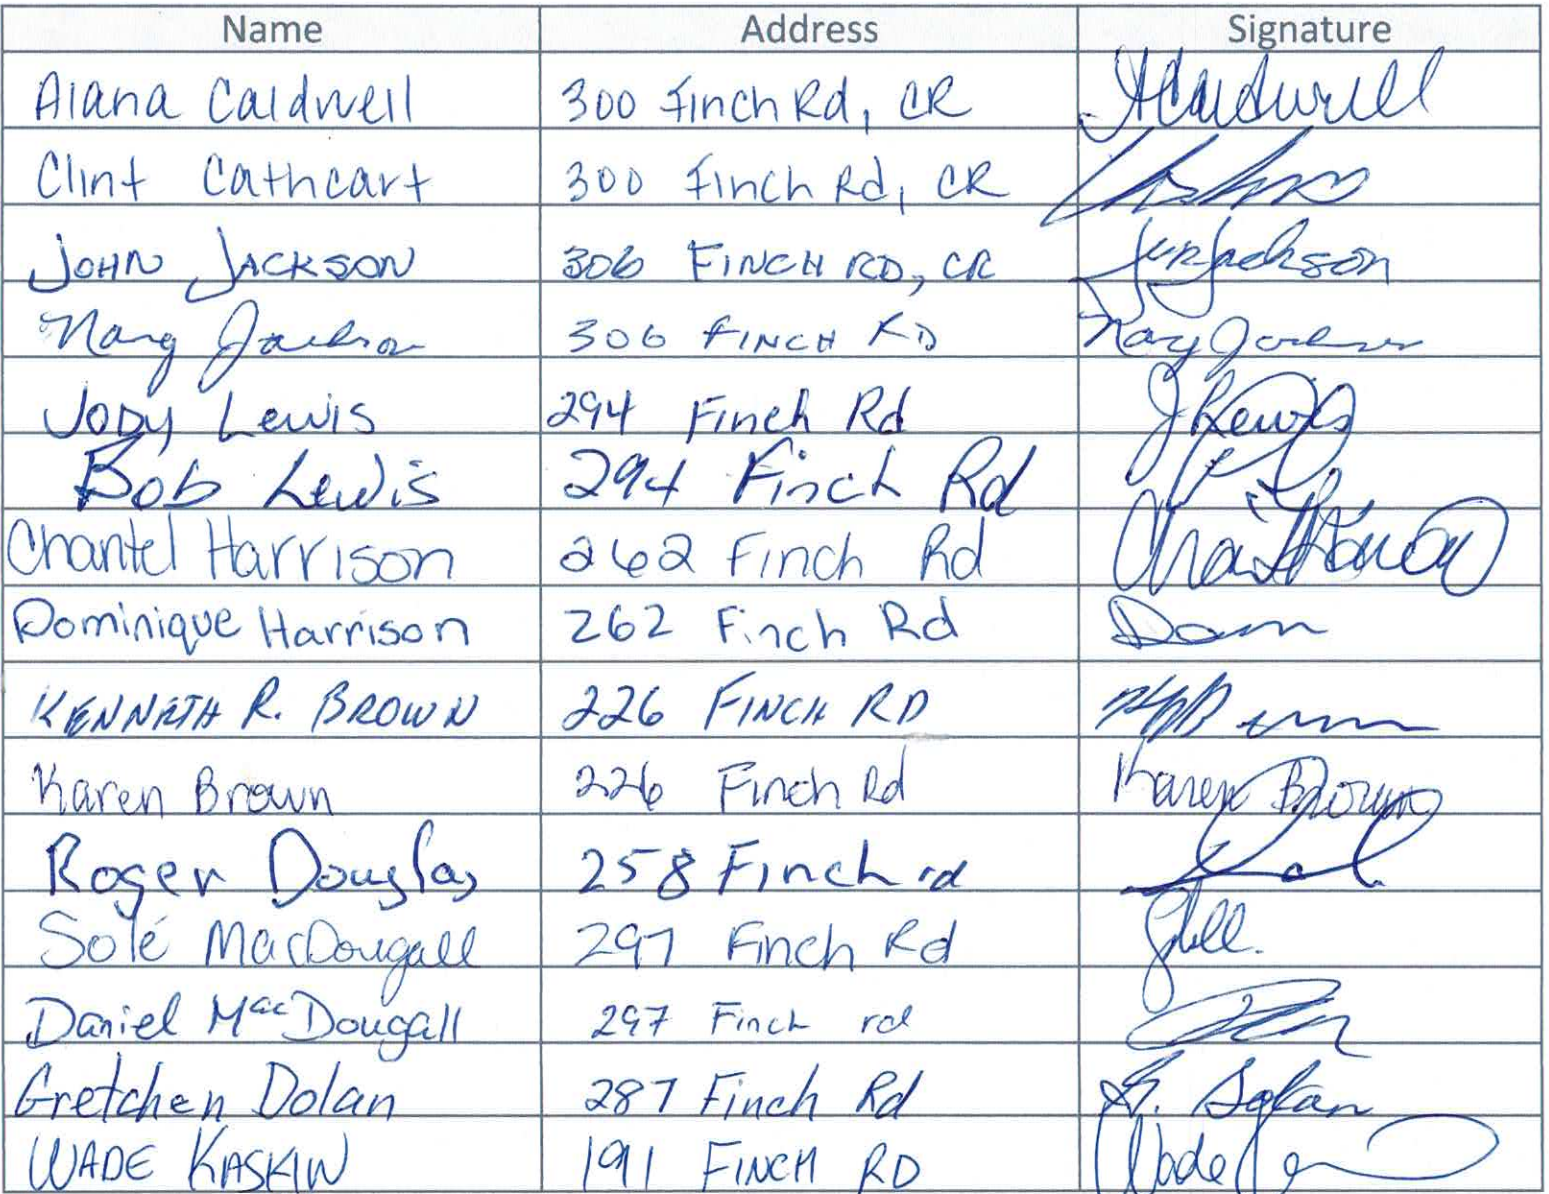 Name Address Signature
Alana Caldwell 300 Finch Rd, CR ACaldwell
Clint Cathcart 300 Finch Rd, CR
JOHN JACKSON 306 FINCH RD, CR Jackson
Jackson 306 FINCH RD
JODY Lewis 294 Finch Rd J Lewis
Bob Lewis 294 Finch Rd
Chantel Harrison 262 Finch Rd
Dominique Harrison 262 Finch Rd Dom
KENNETH R. BROWN 226 FINCH RD
Karen Brown 226 Finch Rd Karen Brown
Roger Douglas 258 Finch rd
Solé MacDougall 297 Finch Rd
Daniel MacDougall 297 Finch rd
Gretchen Dolan 287 Finch Rd G. Dolan
WADE KASKIW 191 FINCH RD Wade